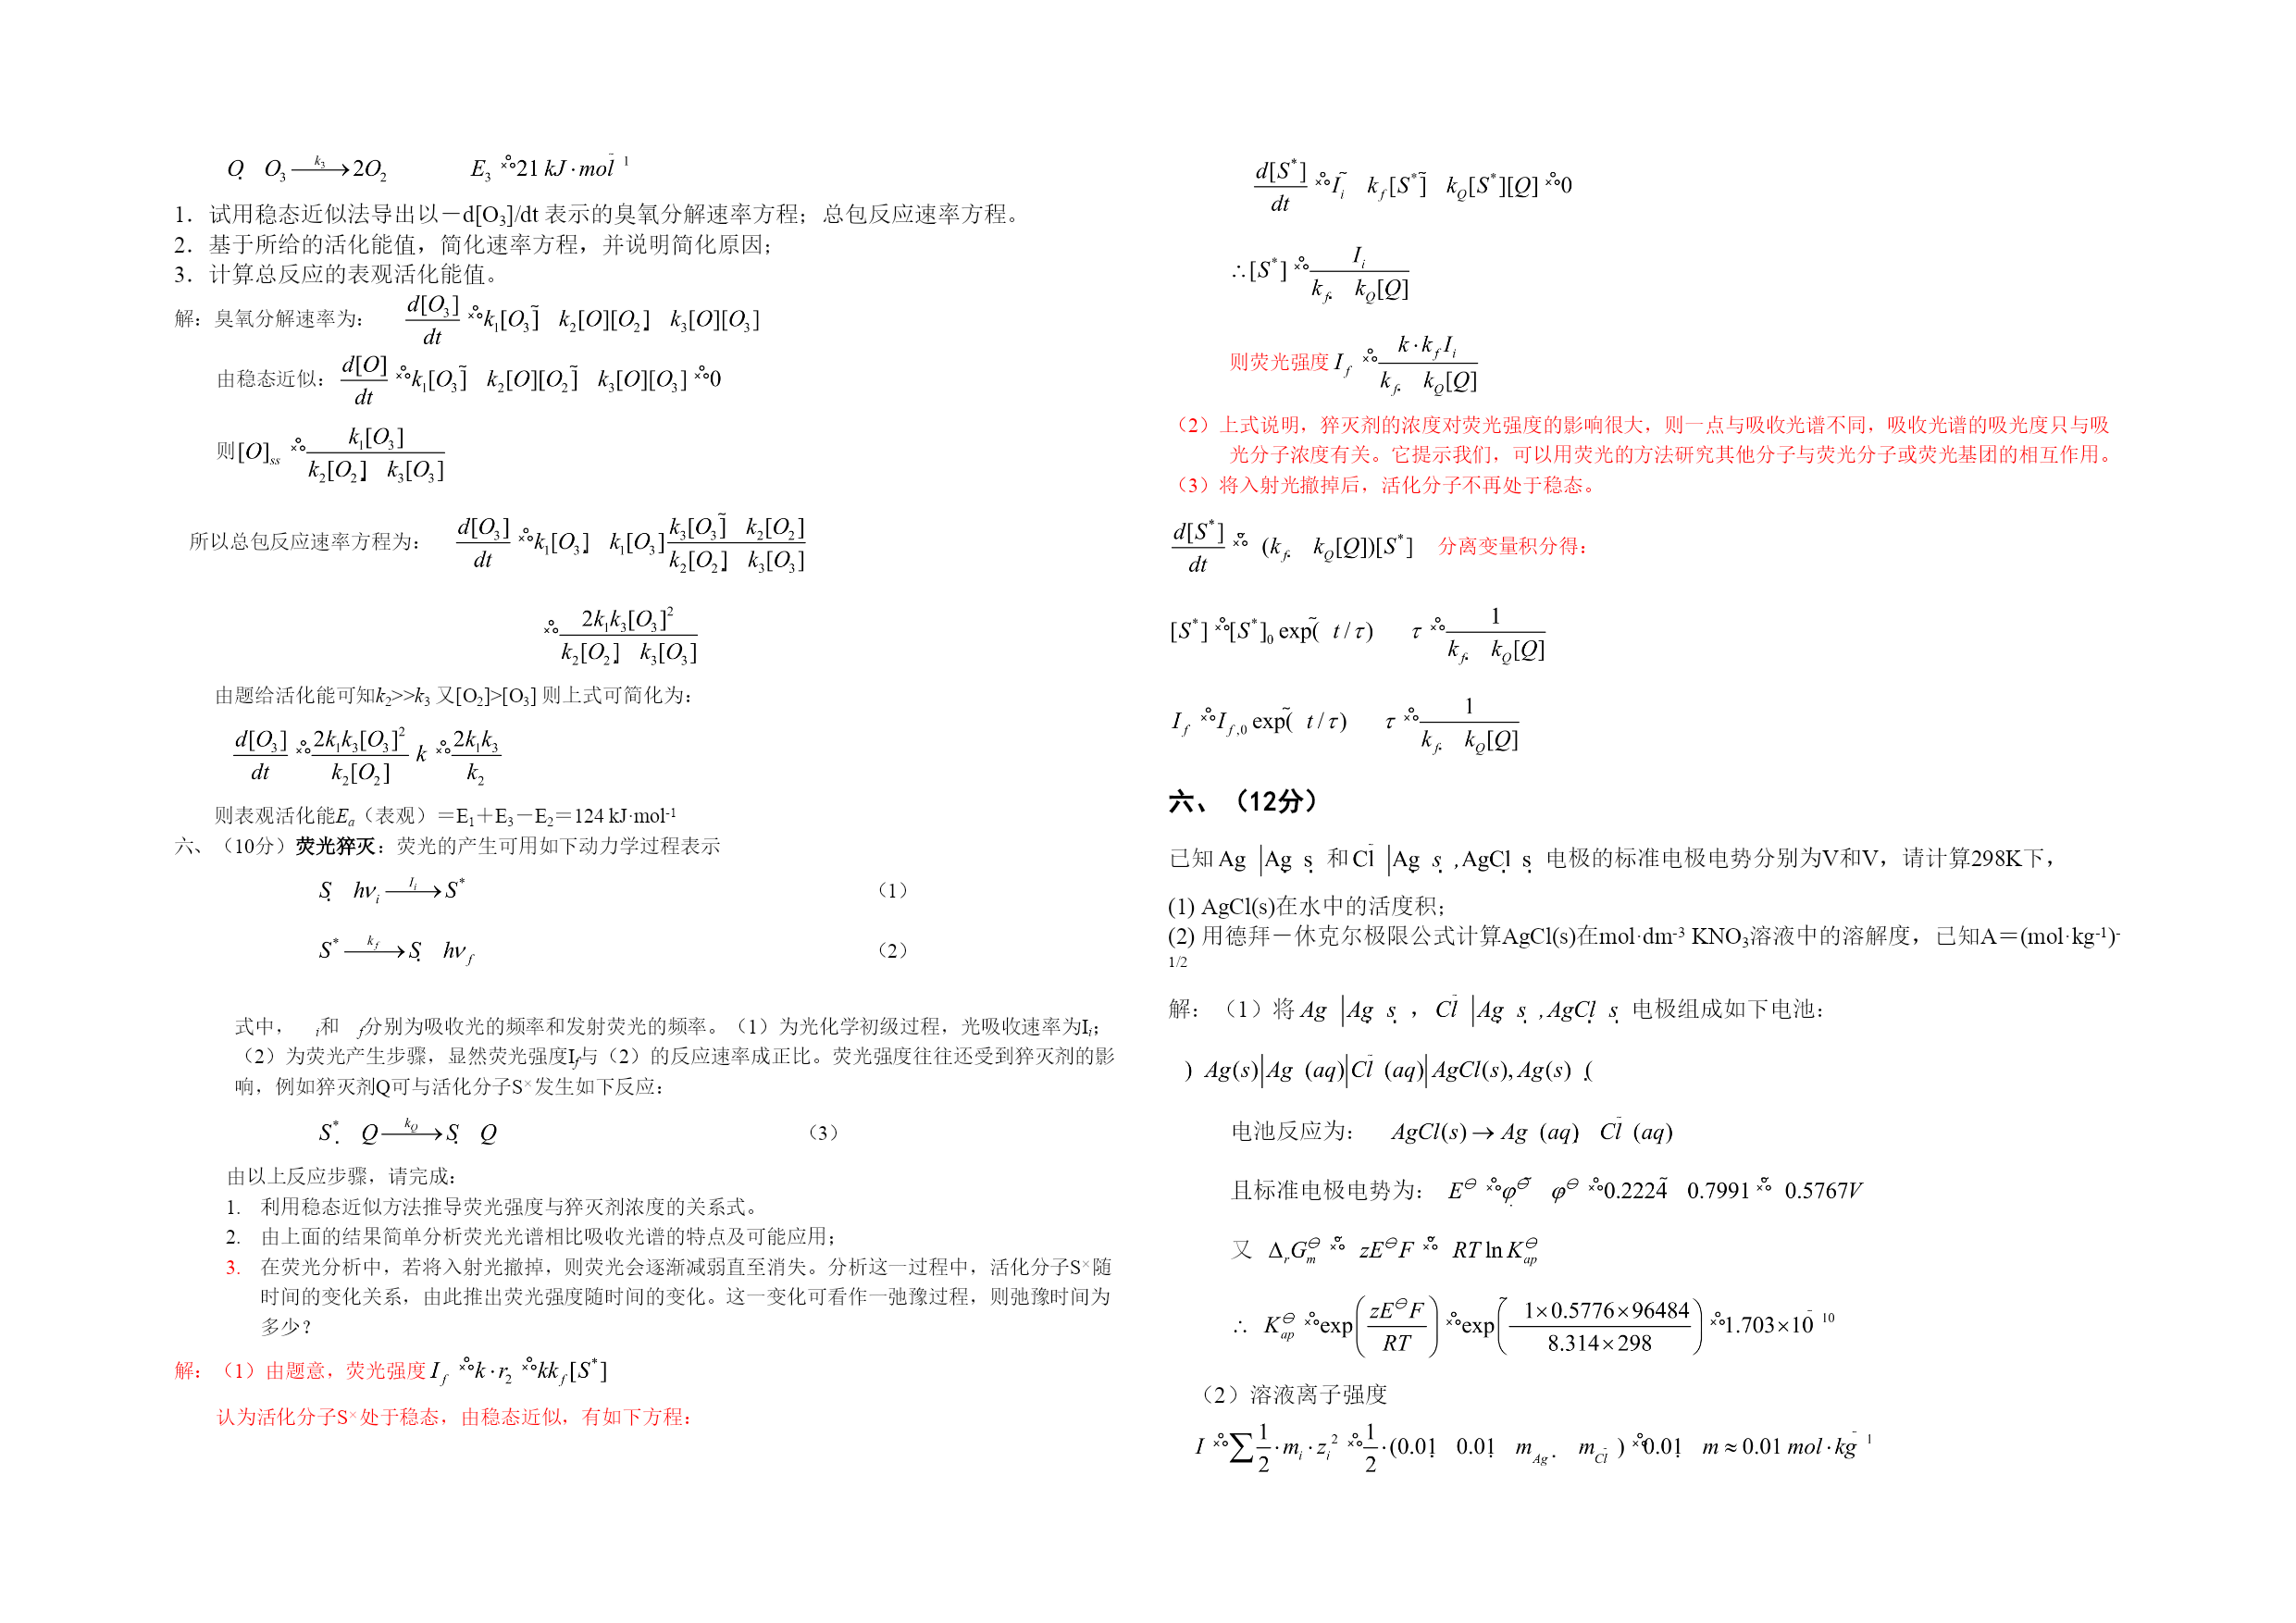 O. O₃ —k₃→ 2O₂ E₃ ×°°21 kJ·mol⁻¹
1．试用稳态近似法导出以－d[O₃]/dt 表示的臭氧分解速率方程；总包反应速率方程。
2．基于所给的活化能值，简化速率方程，并说明简化原因；
3．计算总反应的表观活化能值。
解：臭氧分解速率为： d[O₃]/dt ×°°k₁[O₃]~ k₂[O][O₂]. k₃[O][O₃]
由稳态近似：d[O]/dt ×°°k₁[O₃]~ k₂[O][O₂]~ k₃[O][O₃] ×°°0
则[O]ss ×°° k₁[O₃] / k₂[O₂]. k₃[O₃]
所以总包反应速率方程为： d[O₃]/dt ×°°k₁[O₃]. k₁[O₃] k₃[O₃]~ k₂[O₂] / k₂[O₂]. k₃[O₃]
×°° 2k₁k₃[O₃]² / k₂[O₂]. k₃[O₃]
由题给活化能可知k₂>>k₃ 又[O₂]>[O₃] 则上式可简化为：
d[O₃]/dt ×°° 2k₁k₃[O₃]² / k₂[O₂] k ×°° 2k₁k₃ / k₂
则表观活化能Eₐ（表观）＝E₁＋E₃－E₂＝124 kJ·mol⁻¹
六、（10分）荧光猝灭：荧光的产生可用如下动力学过程表示
S. hνᵢ —Iᵢ→ S* （1）
S* —k_f→ S. hν_f （2）
式中， ᵢ和 _f分别为吸收光的频率和发射荧光的频率。（1）为光化学初级过程，光吸收速率为Iᵢ；
（2）为荧光产生步骤，显然荧光强度I_f与（2）的反应速率成正比。荧光强度往往还受到猝灭剂的影
响，例如猝灭剂Q可与活化分子S×发生如下反应：
S*. Q —k_Q→ S. Q （3）
由以上反应步骤，请完成：
1. 利用稳态近似方法推导荧光强度与猝灭剂浓度的关系式。
2. 由上面的结果简单分析荧光光谱相比吸收光谱的特点及可能应用；
3. 在荧光分析中，若将入射光撤掉，则荧光会逐渐减弱直至消失。分析这一过程中，活化分子S×随
时间的变化关系，由此推出荧光强度随时间的变化。这一变化可看作一弛豫过程，则弛豫时间为
多少？
解：（1）由题意，荧光强度 I_f ×°°k·r₂ ×°°kk_f[S*]
认为活化分子S×处于稳态，由稳态近似，有如下方程：
d[S*]/dt ×°°Iᵢ~ k_f[S*]~ k_Q[S*][Q] ×°°0
∴[S*] ×°° Iᵢ / k_f. k_Q[Q]
则荧光强度 I_f ×°° k·k_f Iᵢ / k_f. k_Q[Q]
（2）上式说明，猝灭剂的浓度对荧光强度的影响很大，则一点与吸收光谱不同，吸收光谱的吸光度只与吸
光分子浓度有关。它提示我们，可以用荧光的方法研究其他分子与荧光分子或荧光基团的相互作用。
（3）将入射光撤掉后，活化分子不再处于稳态。
d[S*]/dt ×°° (k_f. k_Q[Q])[S*] 分离变量积分得：
[S*] ×°°[S*]₀ exp(~ t/τ) τ ×°° 1 / k_f. k_Q[Q]
I_f ×°°I_f,0 exp(~ t/τ) τ ×°° 1 / k_f. k_Q[Q]
六、（12分）
已知 Ag |Ag. s. 和 Cl⁻ |Ag. s. , AgCl. s. 电极的标准电极电势分别为V和V，请计算298K下，
(1) AgCl(s)在水中的活度积；
(2) 用德拜－休克尔极限公式计算AgCl(s)在mol·dm⁻³ KNO₃溶液中的溶解度，已知A＝(mol·kg⁻¹)⁻
1/2
解：（1）将 Ag |Ag. s. ， Cl⁻ |Ag. s. , AgCl. s. 电极组成如下电池：
) Ag(s)|Ag (aq)|Cl⁻ (aq)|AgCl(s), Ag(s) .(
电池反应为： AgCl(s) → Ag (aq) Cl⁻ (aq)
且标准电极电势为： E⊖ ×°°φ⊖~ φ⊖ ×°°0.2224~ 0.7991 ×°° 0.5767V
又 ΔrG⊖m ×°° zE⊖F ×°° RT ln K⊖ap
∴ K⊖ap ×°°exp(zE⊖F / RT) ×°°exp(~ 1×0.5776×96484 / 8.314×298) ×°°1.703×10⁻¹⁰
（2）溶液离子强度
I ×°°∑ 1/2 ·mᵢ·zᵢ² ×°° 1/2 ·(0.01. 0.01. m_Ag. m_Cl⁻) ×°°0.01. m ≈ 0.01 mol·kg⁻¹